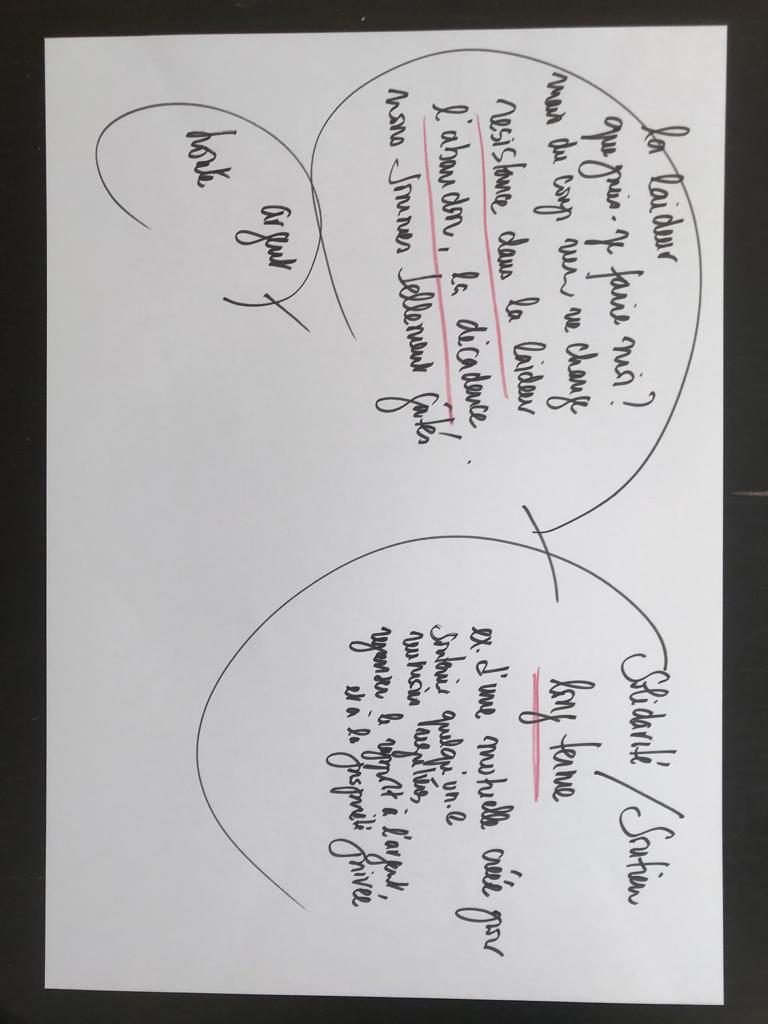 la laideur
que puis-je faire moi?
mais du coup rien ne change
resistance dans la laideur
l'abandon, la décadence.
nous sommes tellement gâtés
argent
honte
Solidarité / Soutien
long terme
ex. d'une mutuelle créée pour
soutenir quelqu'un.e
réunions régulières,
repenser le rapport à l'argent,
et à la propriété privée